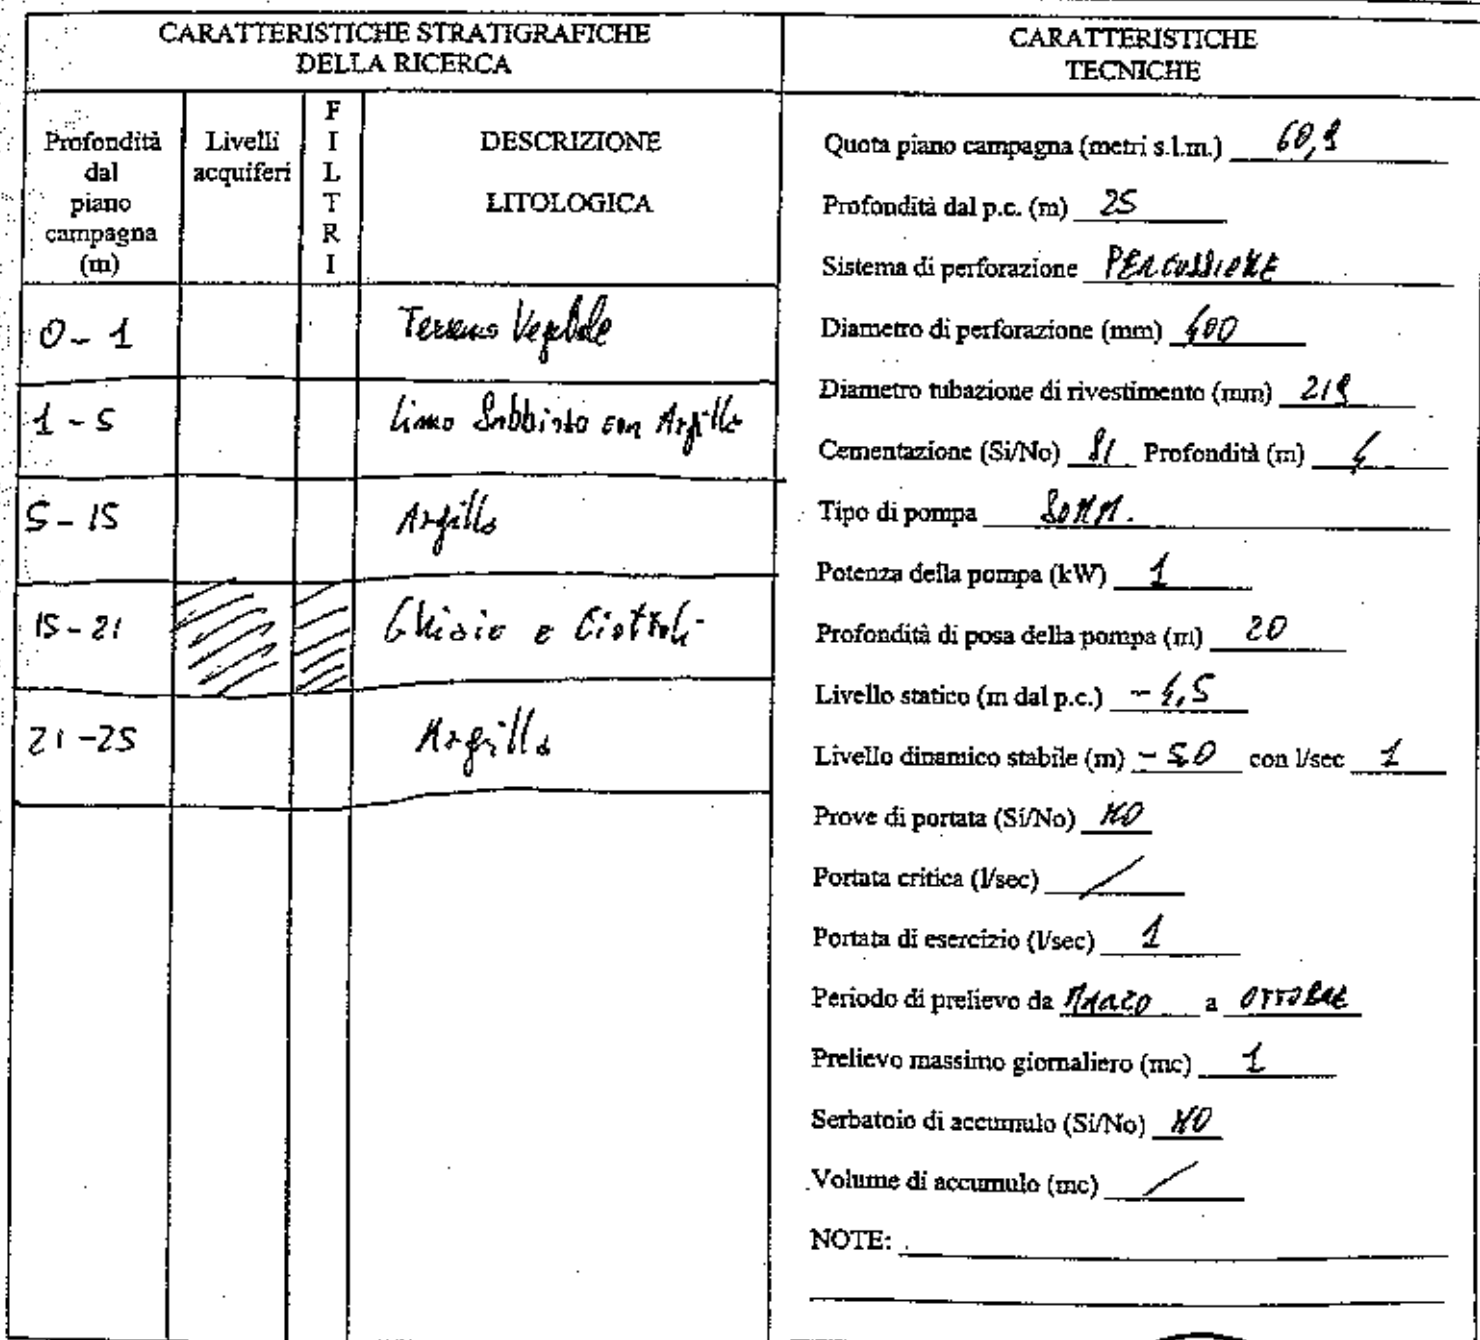 CARATTERISTICHE STRATIGRAFICHE
DELLA RICERCA
Profondità
dal
piano
campagna
(m)
Livelli
acquiferi
F
I
L
T
R
I
DESCRIZIONE
LITOLOGICA
0 - 1 Terreno Vegetale
1 - 5 Limo Sabbioso con Argilla
5 - 15 Argilla
15 - 21 Ghiaie e Ciottoli
21 - 25 Argilla
CARATTERISTICHE
TECNICHE
Quota piano campagna (metri s.l.m.) 60,9
Profondità dal p.c. (m) 25
Sistema di perforazione PERCUSSIONE
Diametro di perforazione (mm) 400
Diametro tubazione di rivestimento (mm) 219
Cementazione (Si/No) SI Profondità (m) 4
Tipo di pompa SOMM.
Potenza della pompa (kW) 1
Profondità di posa della pompa (m) 20
Livello statico (m dal p.c.) - 4,5
Livello dinamico stabile (m) - 5.0 con l/sec 1
Prove di portata (Si/No) NO
Portata critica (l/sec) /
Portata di esercizio (l/sec) 1
Periodo di prelievo da MARZO a OTTOBRE
Prelievo massimo giornaliero (mc) 1
Serbatoio di accumulo (Si/No) NO
Volume di accumulo (mc) /
NOTE: